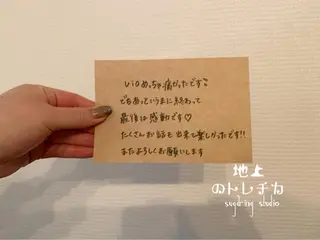 vioめっちゃ痛かったです
でもあっというまに終わって
最後は感動です♡
たくさんお話も出来て楽しかったです!!
またよろしくお願いします
地上
のトレチカ
sugaring studio